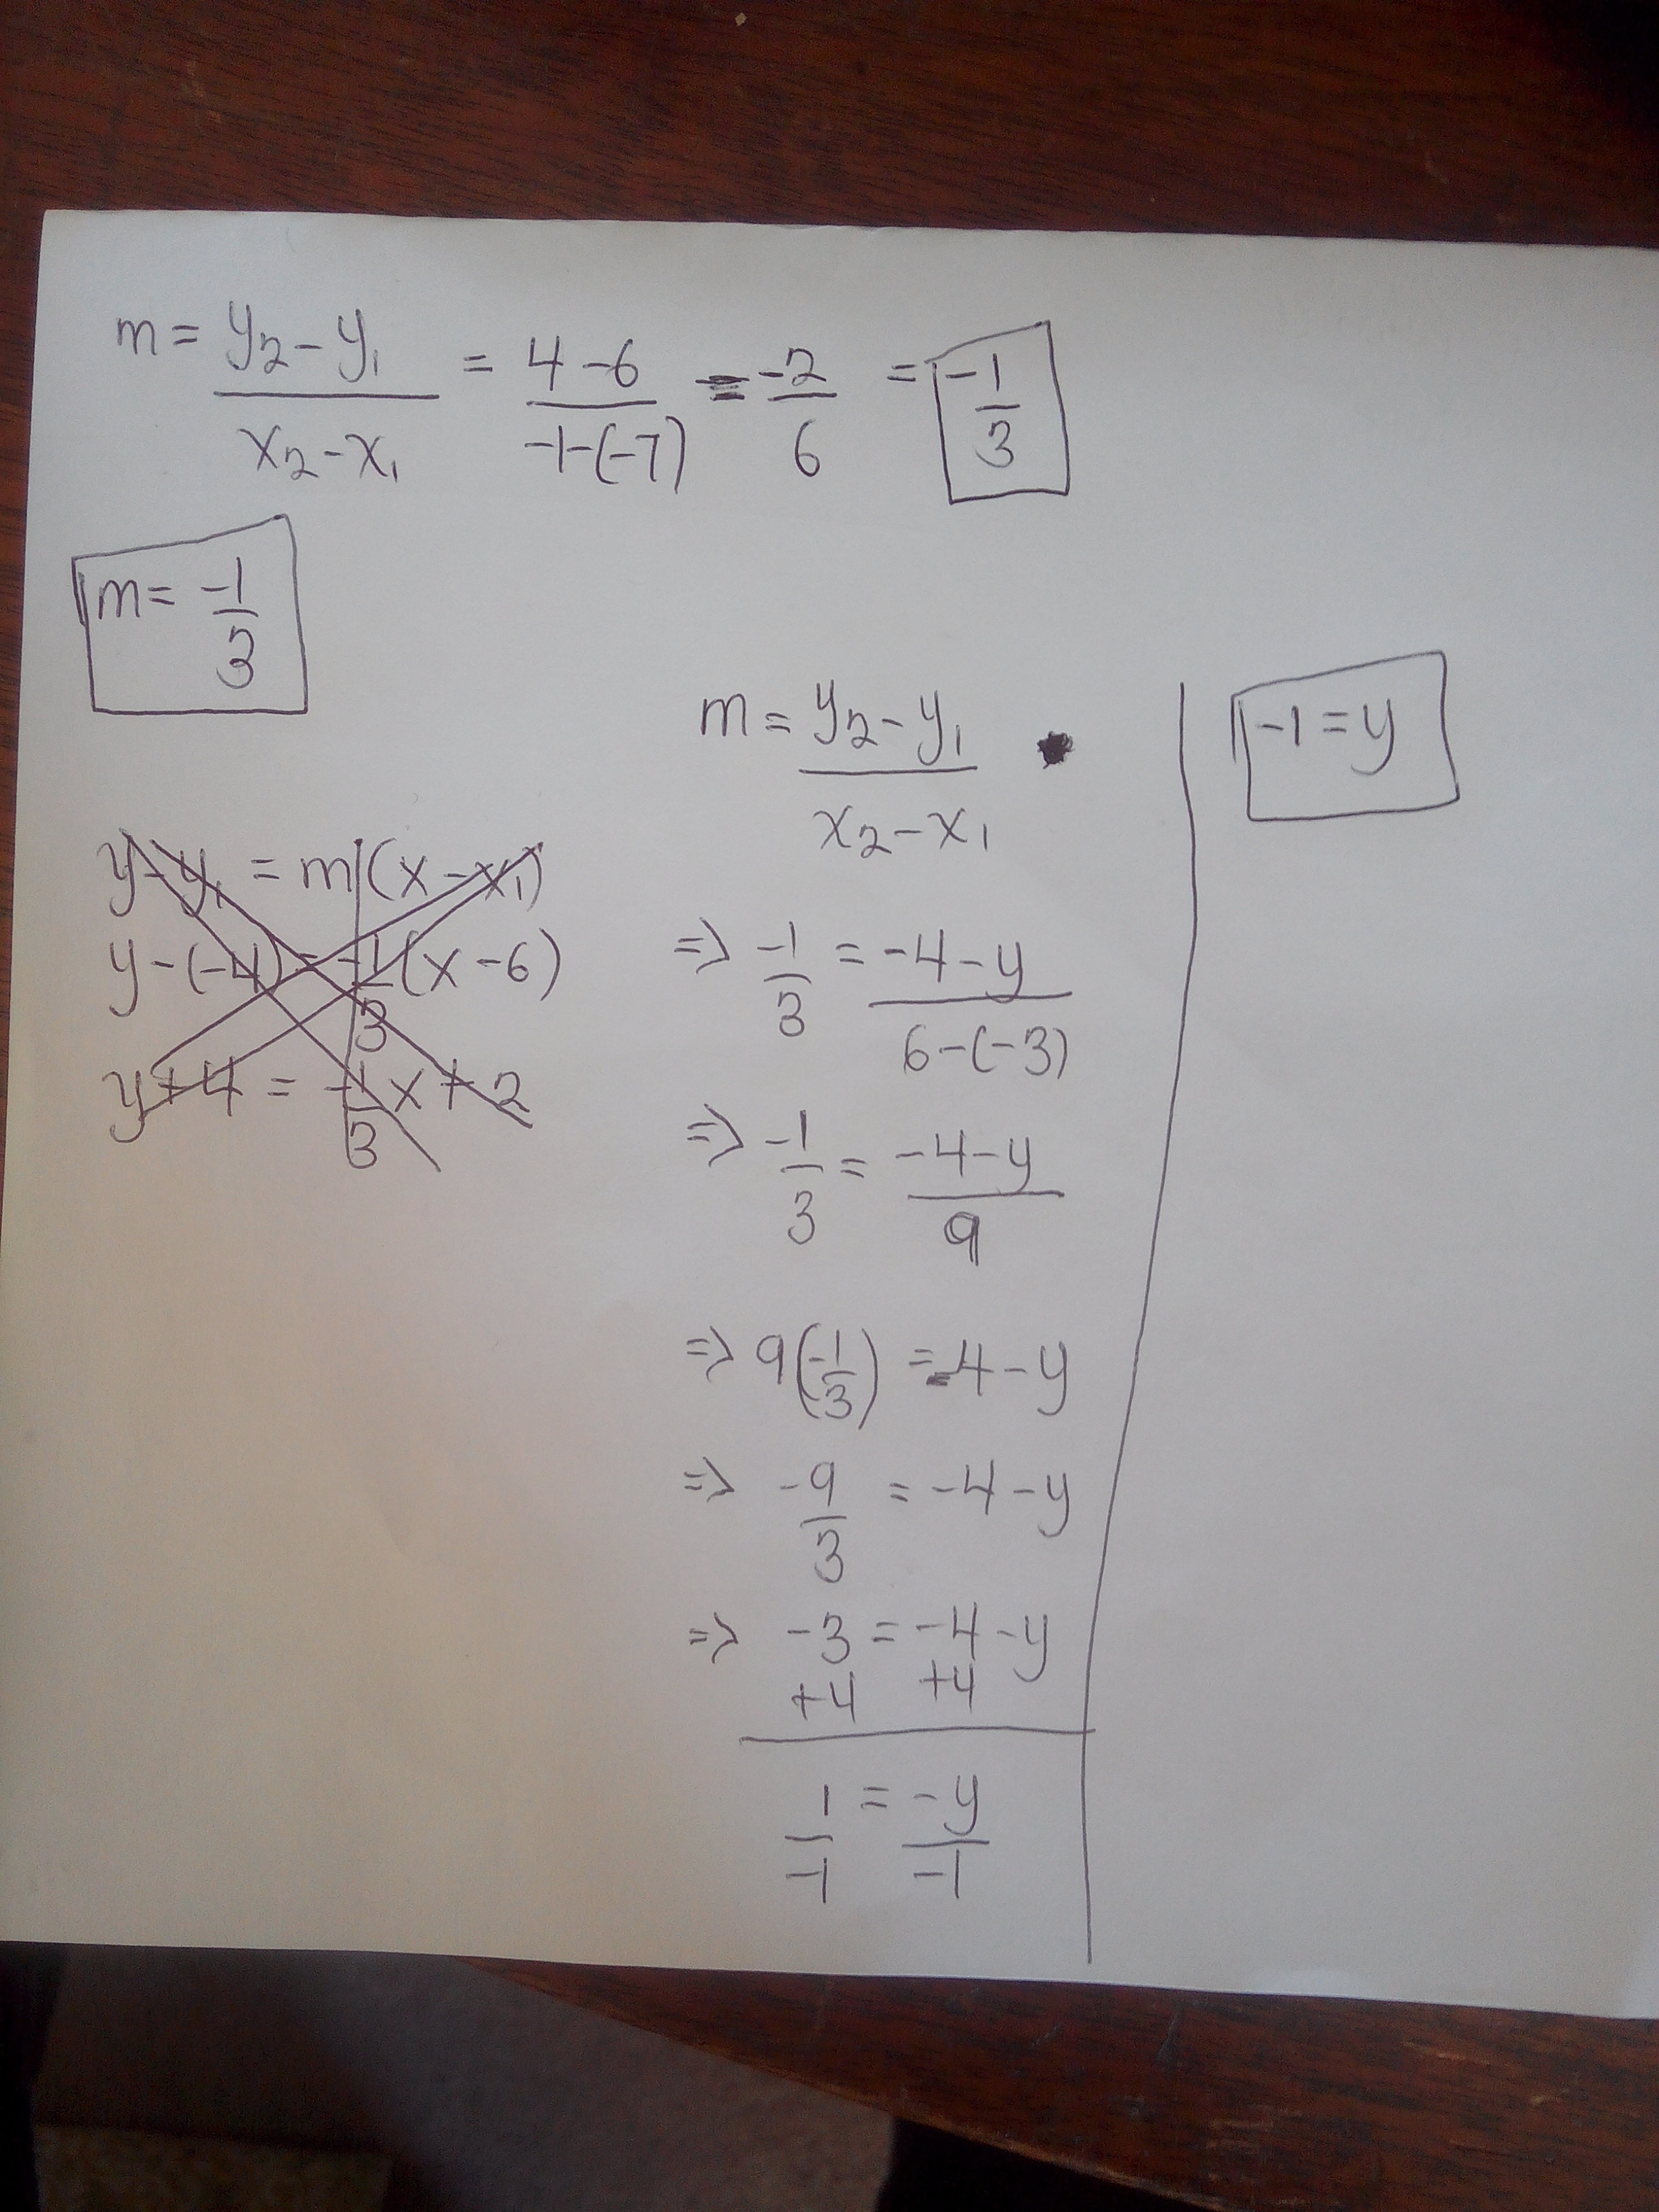 m = y₂ - y₁ / x₂ - x₁ = 4 - 6 / -1 - (-7) = -2 / 6 = -1 / 3
m = -1 / 3
y - y₁ = m (x - x₁)
y - (-4) = -1 / 3 (x - 6)
y + 4 = -1 / 3 x + 2
m = y₂ - y₁ / x₂ - x₁
=> -1 / 3 = -4 - y / 6 - (-3)
=> -1 / 3 = -4 - y / 9
=> 9 (-1 / 3) = -4 - y
=> -9 / 3 = -4 - y
=> -3 = -4 - y
+4 +4
1 / -1 = -y / -1
-1 = y